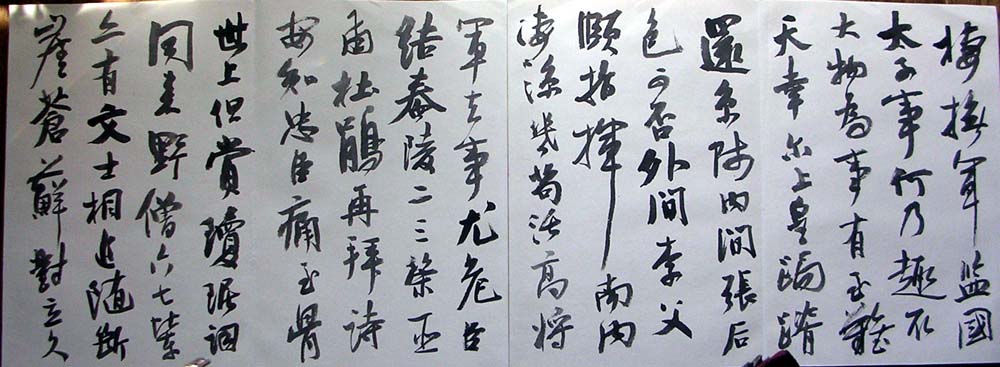 棲撫軍監國
太子事何乃趣取
大物為事有至難
天幸尓上皇跼蹐
還京師內間張后
色可否外間李父
頤指揮南內
淒涼幾苟活高將
軍去事尤危臣
結舂陵二三策臣
甫杜鵑再拜詩
安知忠臣痛至骨
世上但賞瓊琚詞
同來野僧六七輩
亦有文士相追隨斷
崖蒼蘚對立久